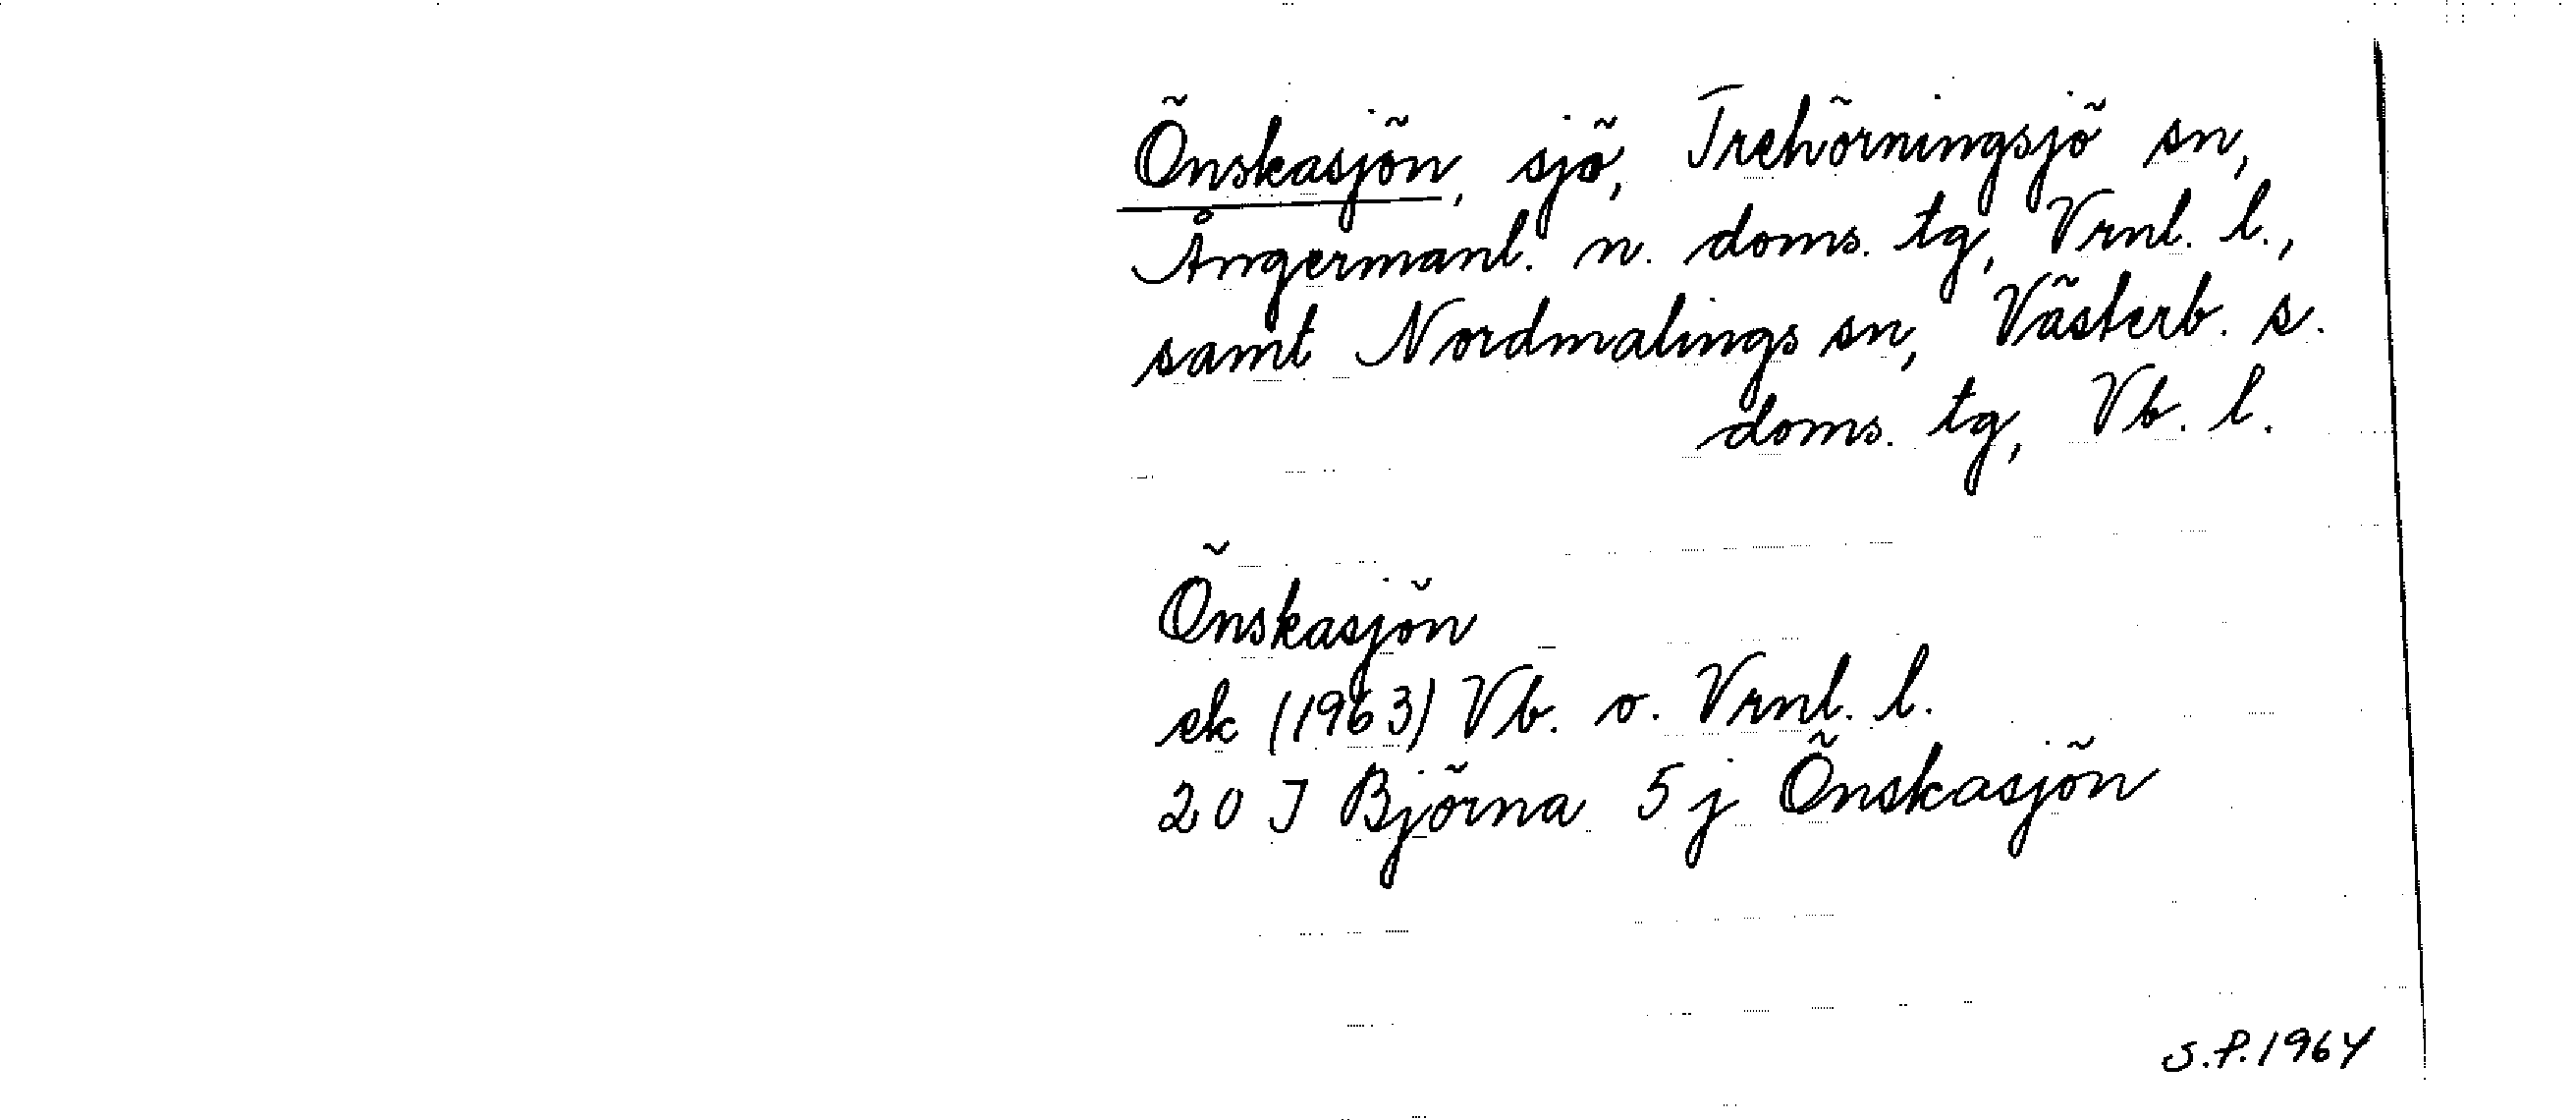 Önskasjön, sjö, Trehörningsjö sn,
Ångermanl. n. doms. tg, Vrnl. l.,
samt Nordmalings sn, Västerb. s.
doms. tg, Vb. l.
Önskasjön
ek (1963) Vb. o. Vrnl. l.
20 J Björna 5 j Önskasjön
S.P. 1964